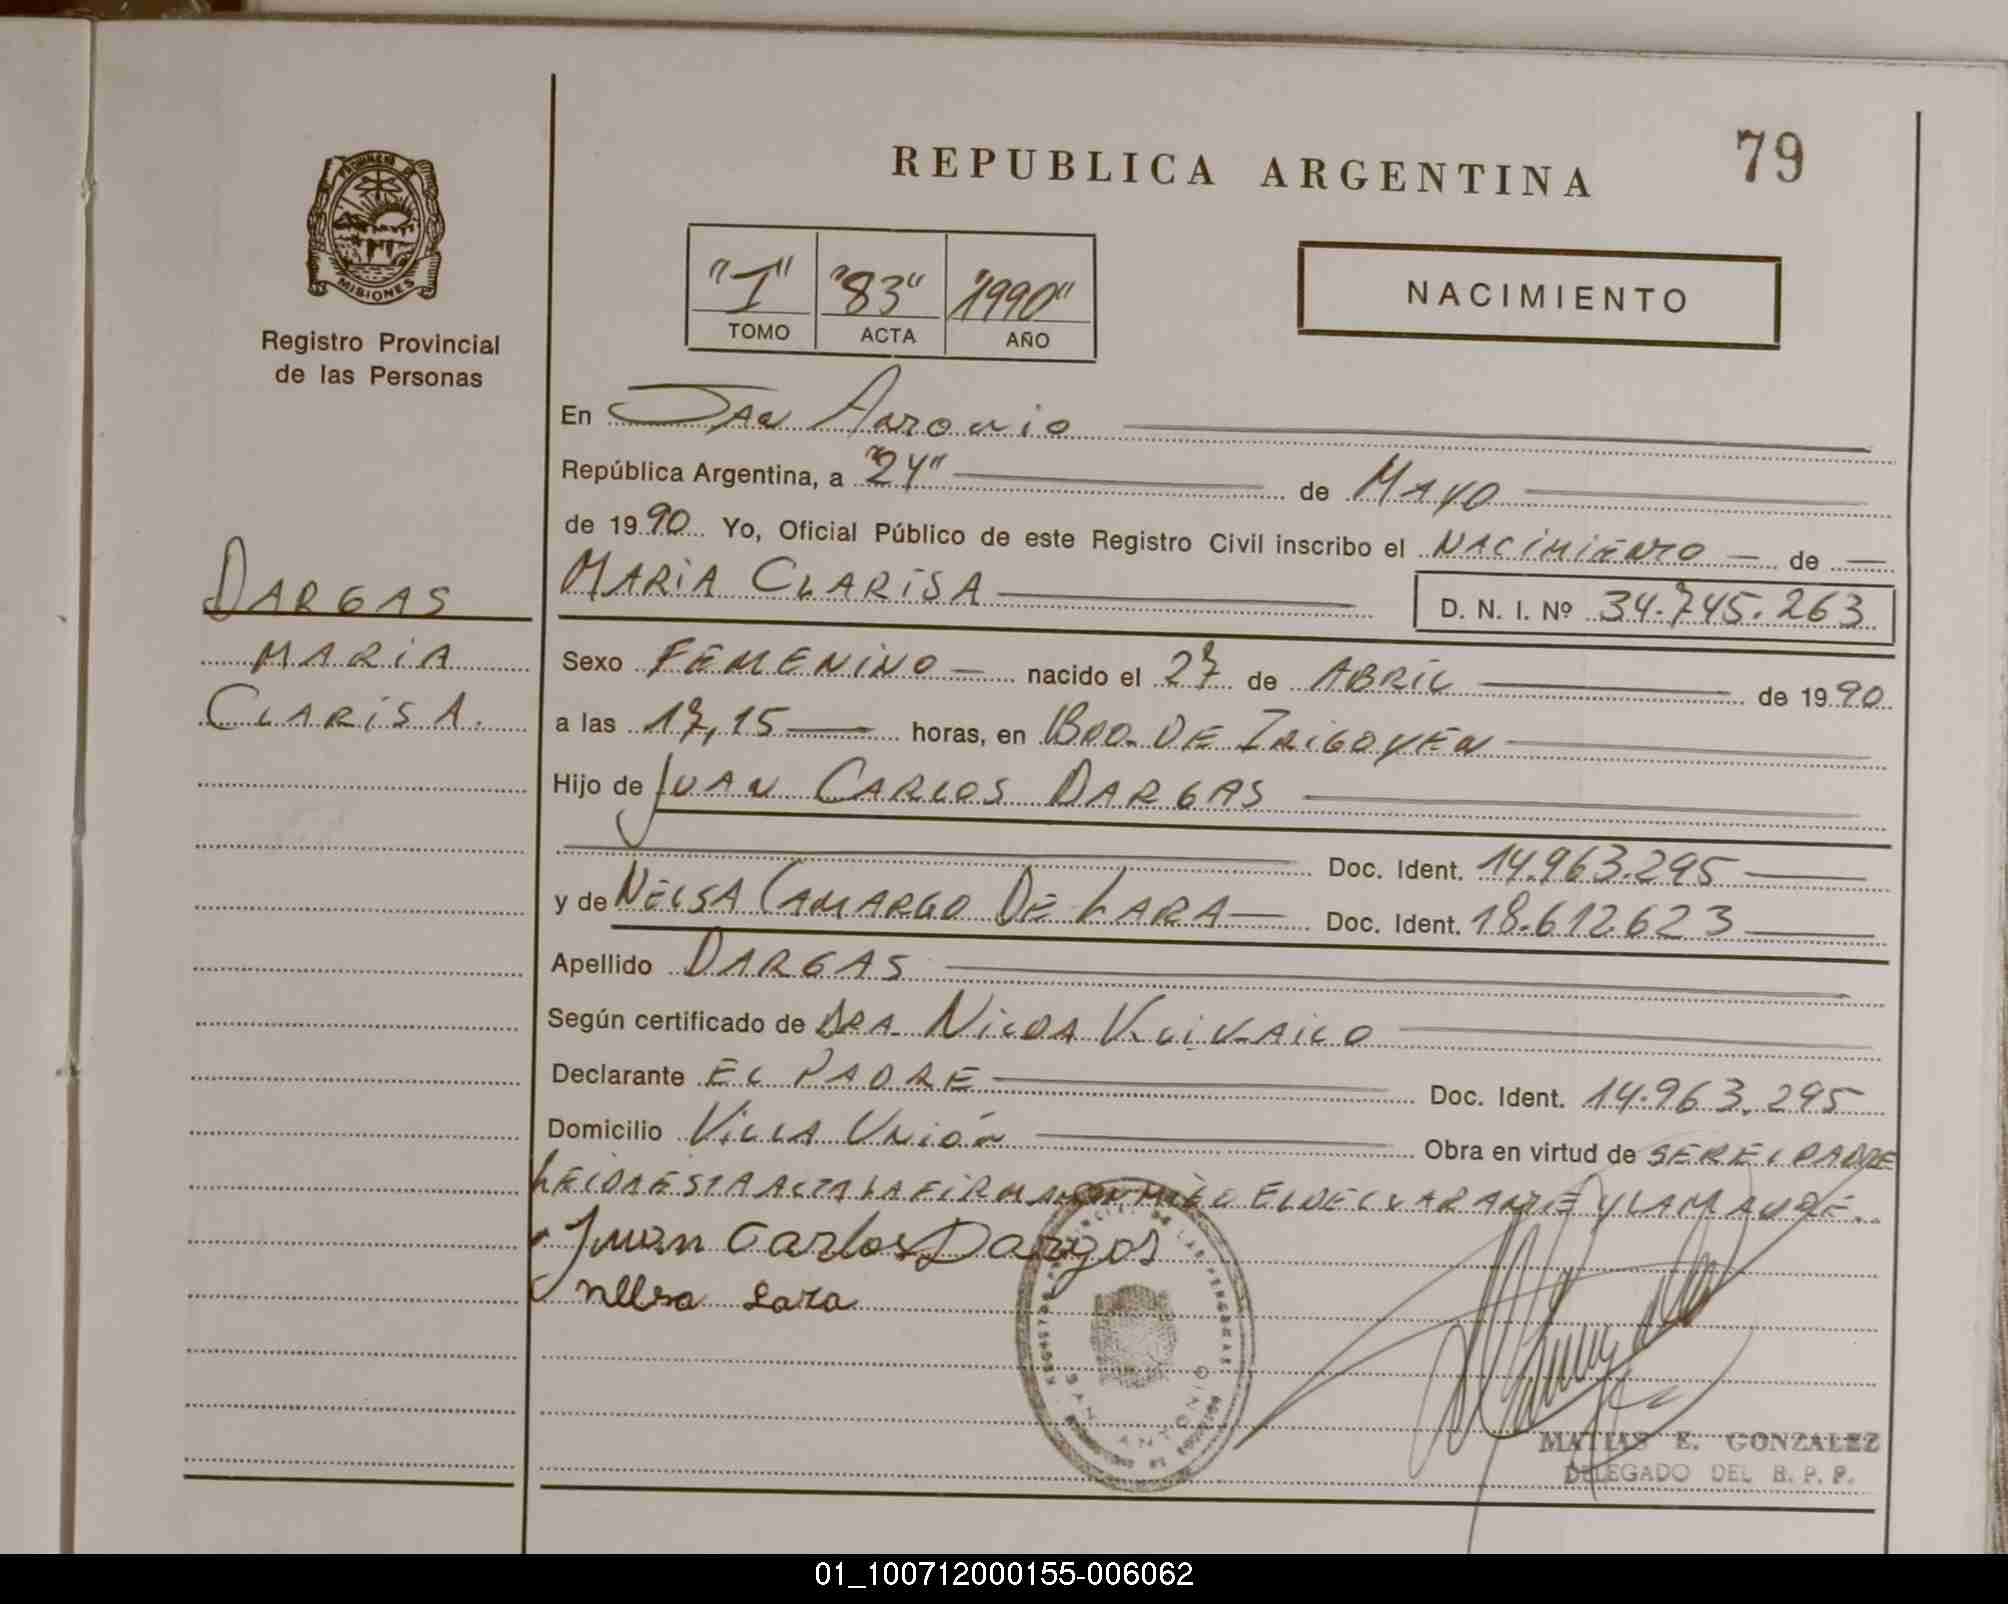 79
REPUBLICA ARGENTINA
MISIONES
Registro Provincial
de las Personas
"I" "83" "1990"
TOMO ACTA AÑO
NACIMIENTO
En San Antonio
República Argentina, a "24" de Mayo
de 1990 Yo, Oficial Público de este Registro Civil inscribo el NACIMIENTO de
MARIA CLARISA D. N. I. Nº 34.745.263
DARGAS
MARIA
CLARISA.
Sexo FEMENINO nacido el 27 de ABRIL de 1990
a las 17,15 horas, en BDO. DE IRIGOYEN
Hijo de JUAN CARLOS DARGAS
Doc. Ident. 14.963.295
y de NELSA CAMARGO DE LARA Doc. Ident. 18.612.623
Apellido DARGAS
Según certificado de DRA. NILDA
Declarante EL PADRE Doc. Ident. 14.963.295
Domicilio VILLA UNIÓN Obra en virtud de SER EL PADRE
LEIDA ESTA ACTA LA FIRMAN EL DECLARANTE Y LA MADRE.
Juan Carlos Dargas
nelsa Lara
SAN ANTONIO
MATIAS E. GONZALEZ
DELEGADO DEL R. P. P.
01_100712000155-006062